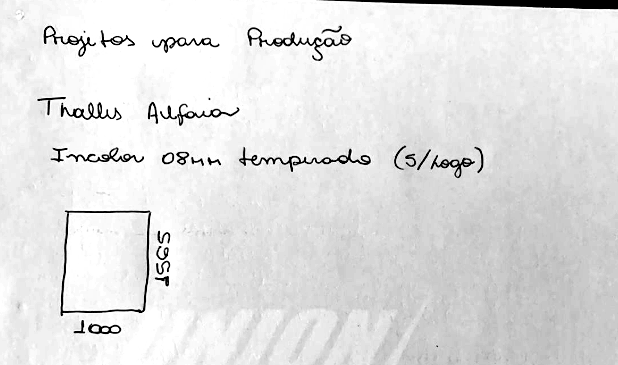 Projetos para Produção
Thallis Alfaia
Incolor 08mm temperado (S/Logo)
1565
1000
UNION